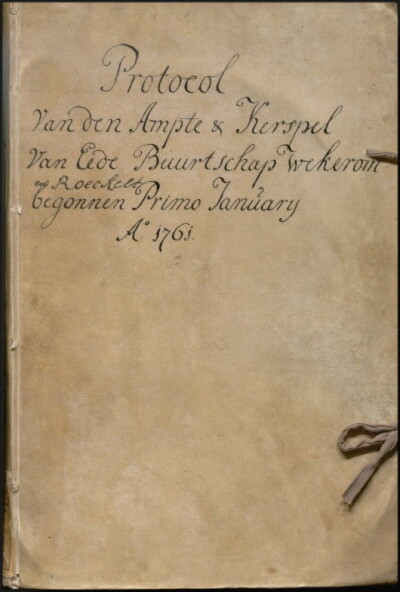 Protocol
Van den Ampte & Kerspel
Van Eede Buurtschap Wekerom
en Roeckelt
begonnen Primo January
Aº 1761.